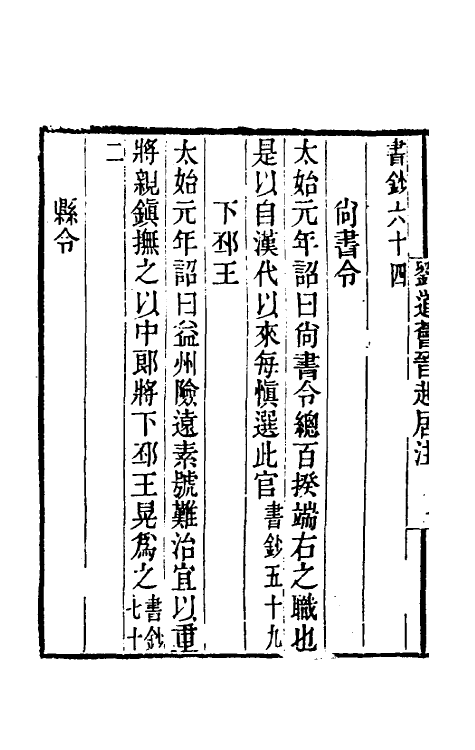 劉道薈晉起居注
書鈔六十四
尚書令
太始元年詔曰尚書令總百揆端右之職也
是以自漢代以來每慎選此官書鈔五十九
下邳王
太始元年詔曰益州險遠素號難治宜以重
將親鎮撫之以中郎將下邳王晃爲之書鈔七十
二
縣令